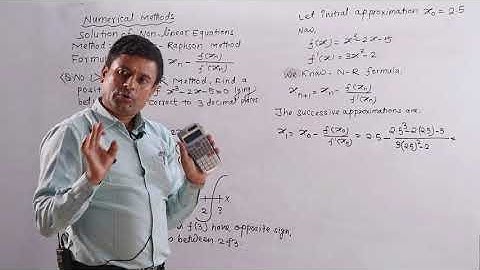 Numerical Methods
Solution of Non-linear Equations
Method - Raphson Method
Formu xn - f(xn)/f'(xn)
R Method, Find a
posit x²-2x-5=0 lying
be correct to 3 decimal places
2 3 x
f(3) have opposite sign,
between 2 & 3
Let Initial approximation x0 = 2.5
Now,
f(x) = x³-2x-5
f'(x) = 3x²-2
We Know- N-R formula.
xn+1 = xn - f(xn)/f'(xn)
The successive approximations are.
x1 = x0 - f(x0)/f'(x0) = 2.5 - 2.5³-2(2.5)-5/3(2.5)²-2 =